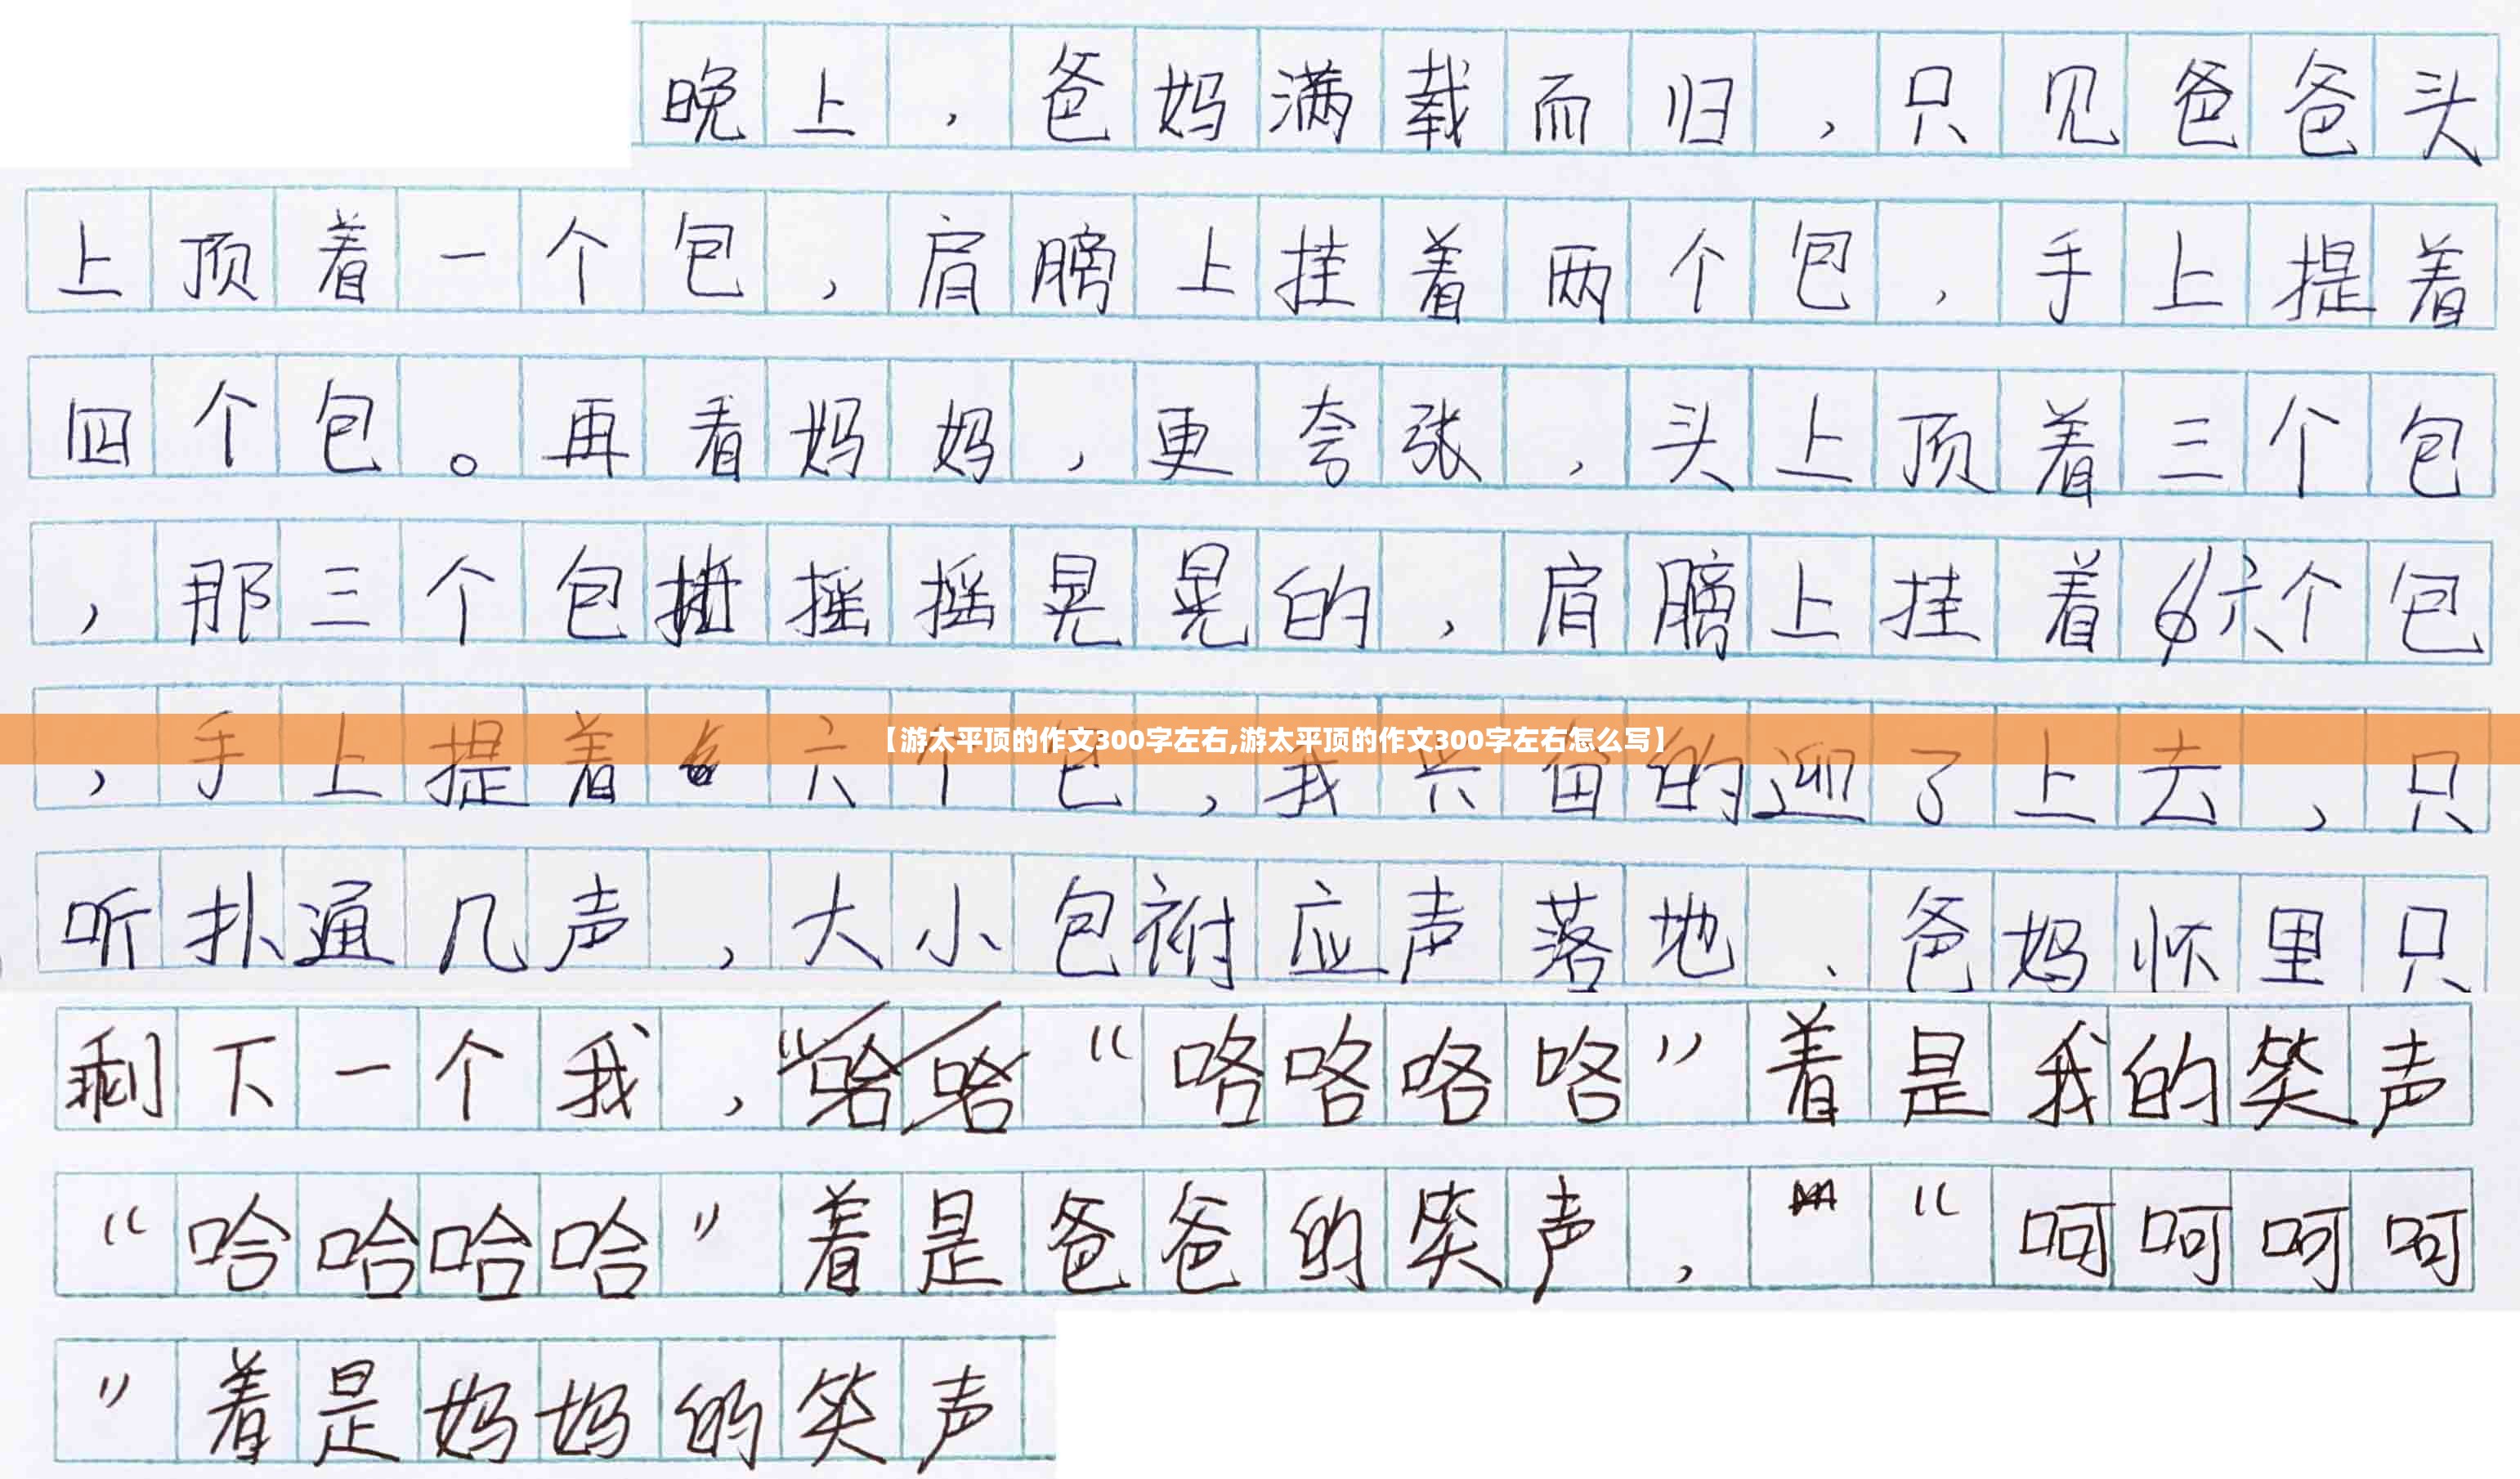 晚上，爸妈满载而归，只见爸爸头
上顶着一个包，肩膀上挂着两个包，手上提着
四个包。再看妈妈，更夸张，头上顶着三个包
，那三个包摇摇晃晃的，肩膀上挂着六个包
【游太平顶的作文300字左右,游太平顶的作文300字左右怎么写】
，手上提着六个包，我兴奋的迎了上去，只
听扑通几声，大小包袱应声落地、爸妈怀里只
剩下一个我，“咯咯咯咯”着是我的笑声
“哈哈哈哈”着是爸爸的笑声，“呵呵呵呵
”着是妈妈的笑声